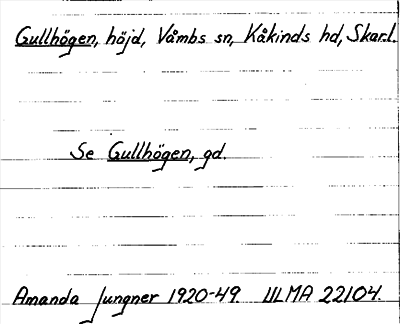 Gullhögen, höjd, Våmbs sn, Kåkinds hd, Skar.l.
Se Gullhögen, gd.
Amanda Jungner 1920-49. ULMA 22104.